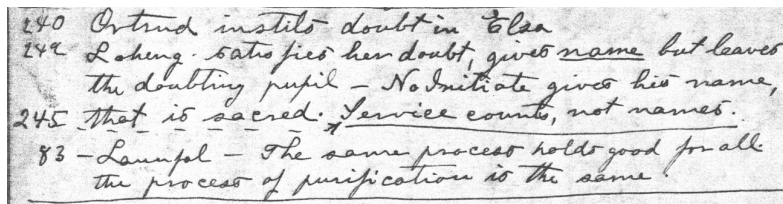 240 Ortrud instils doubt in Elsa
242 Loheng. satisfies her doubt, gives name but leaves
the doubting pupil – No Initiate gives his name,
245 that is sacred. Service counts, not names.
83 – Launfal – The same process holds good for all
the process of purification is the same.